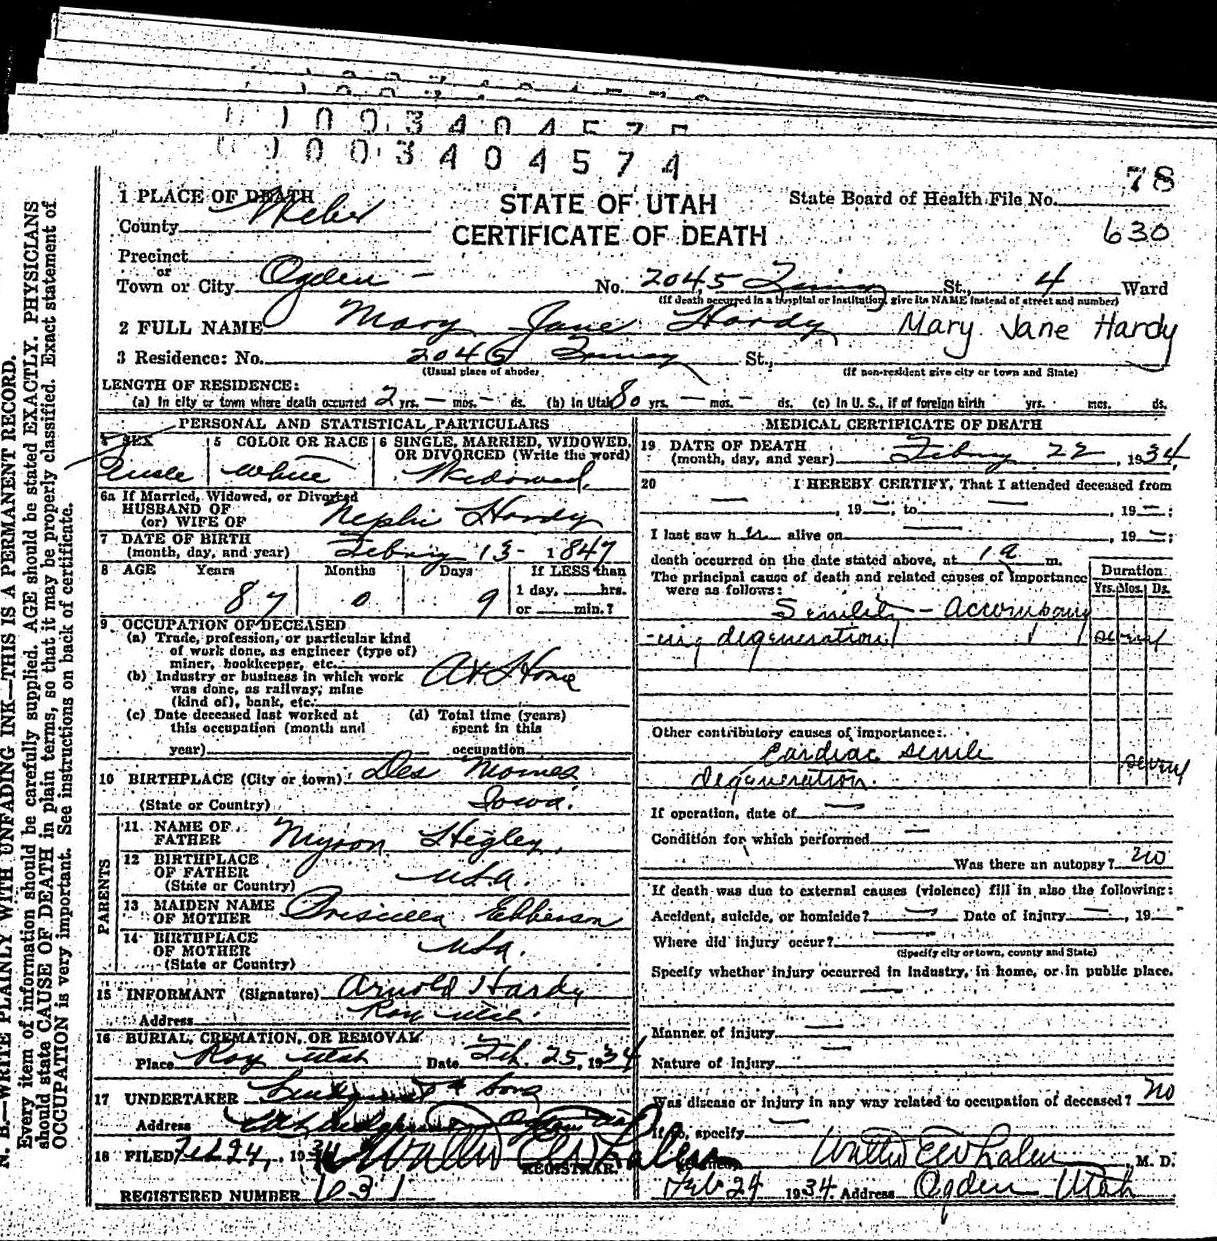 0100340457
01003404574
78
1 PLACE OF DEATH
STATE OF UTAH
CERTIFICATE OF DEATH
State Board of Health File No.
630
County Weber
Precinct
or
Town or City Ogden - No. 2045 Quincy St., 4 Ward
(If death occurred in a hospital or institution, give its NAME instead of street and number)
2 FULL NAME Mary Jane Hardy Mary Jane Hardy
3 Residence: No. 2045 Quincy St.,
(Usual place of abode) (If non-resident give city or town and State)
LENGTH OF RESIDENCE:
(a) In city or town where death occurred 2 yrs. — mos. — ds. (b) In Utah 80 yrs. — mos. — ds. (c) In U. S., if of foreign birth yrs. mos. ds.
PERSONAL AND STATISTICAL PARTICULARS
SEX 5 COLOR OR RACE 6 SINGLE, MARRIED, WIDOWED,
OR DIVORCED (Write the word)
White Widowed
6a If Married, Widowed, or Divorced
HUSBAND OF
(or) WIFE OF Nephi Hardy
7 DATE OF BIRTH
(month, day, and year) 13 - 1847
8 AGE Years Months Days If LESS than
1 day, hrs.
87 0 9 or min.?
9 OCCUPATION OF DECEASED
(a) Trade, profession, or particular kind
of work done, as engineer (type of)
miner, bookkeeper, etc.
At Home
(b) Industry or business in which work
was done, as railway, mine
(kind of), bank, etc.
(c) Date deceased last worked at
this occupation (month and
year)
(d) Total time (years)
spent in this
occupation
10 BIRTHPLACE (City or town) Des Moines
(State or Country) Iowa.
PARENTS
11. NAME OF
FATHER Myron Higley.
12 BIRTHPLACE
OF FATHER USA.
(State or Country)
13 MAIDEN NAME
OF MOTHER Priscilla Ebberson
14 BIRTHPLACE
OF MOTHER USA.
(State or Country)
15 INFORMANT (Signature) Arnold Hardy
Address Roy Utah.
16 BURIAL, CREMATION, OR REMOVAL
Place Roy Utah Date Feb. 25, 1934
17 UNDERTAKER & Sons
Address
18 FILED Feb 24, 1934 Walter E Whalen
REGISTRAR.
REGISTERED NUMBER 631
MEDICAL CERTIFICATE OF DEATH
19 DATE OF DEATH
(month, day, and year) 22, 1934
20 I HEREBY CERTIFY, That I attended deceased from
—, 19—, to —, 19—;
I last saw her alive on —, 19—;
death occurred on the date stated above, at 1 a m.
The principal cause of death and related causes of importance
were as follows:
Duration
Yrs. Mos. Ds.
Senility - Accompany
-ing degeneration
Other contributory causes of importance:
Cardiac senile
degeneration.
If operation, date of —
Condition for which performed —
Was there an autopsy? no
If death was due to external causes (violence) fill in also the following:
Accident, suicide, or homicide? — Date of injury —, 19—
Where did injury occur? —
(Specify city or town, county and State)
Specify whether injury occurred in Industry, in home, or in public place.
—
Manner of injury —
Nature of injury —
Was disease or injury in any way related to occupation of deceased? no
If so, specify —
Walter E Whalen M. D.
Feb 24 1934. Address Ogden Utah
N. B.—WRITE PLAINLY WITH UNFADING INK—THIS IS A PERMANENT RECORD.
Every item of information should be carefully supplied. AGE should be stated EXACTLY. PHYSICIANS
should state CAUSE OF DEATH in plain terms, so that it may be properly classified. Exact statement of
OCCUPATION is very important. See instructions on back of certificate.